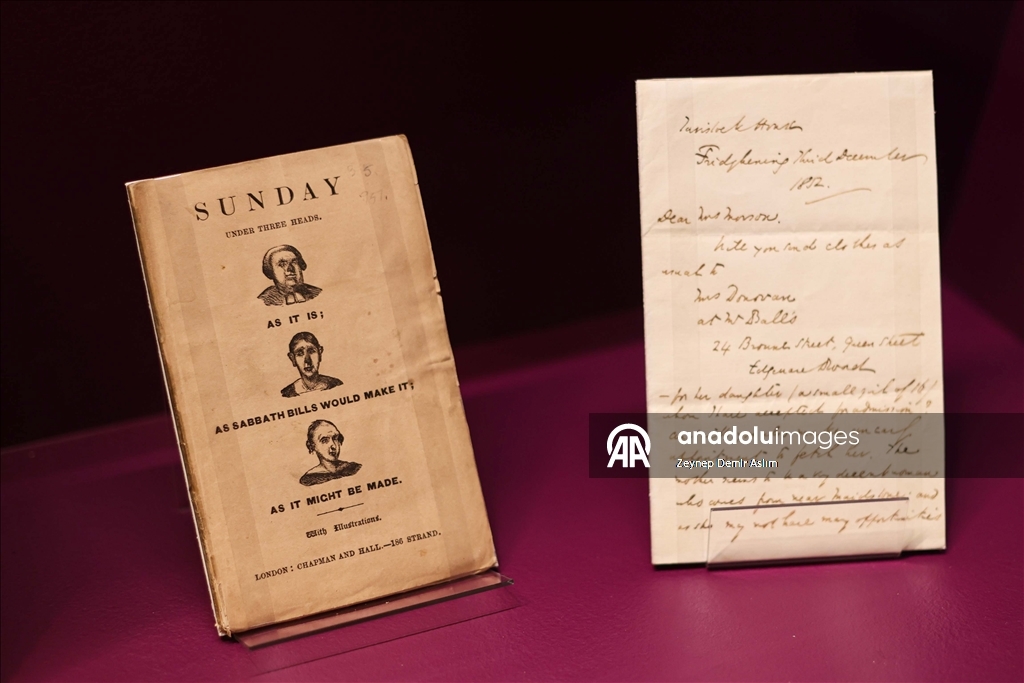 SUNDAY
UNDER THREE HEADS.
AS IT IS;
AS SABBATH BILLS WOULD MAKE IT;
AS IT MIGHT BE MADE.
With Illustrations.
LONDON: CHAPMAN AND HALL.—186 STRAND.
Tavistock House
Friday Evening Third December
1852.
Dear Mrs Morson.
you and clothes as
usual to
Mrs Donovan
at Mr Ball's
24 Street, Queen Street
Edgeware Road
— for her daughter (a small girl of 16)
for admission
to fetch her. The
mother seems to be a very decent woman
who comes from near Maidstone; and
as she may not have many opportunities
AA anadoluimages
Zeynep Demir Aslım